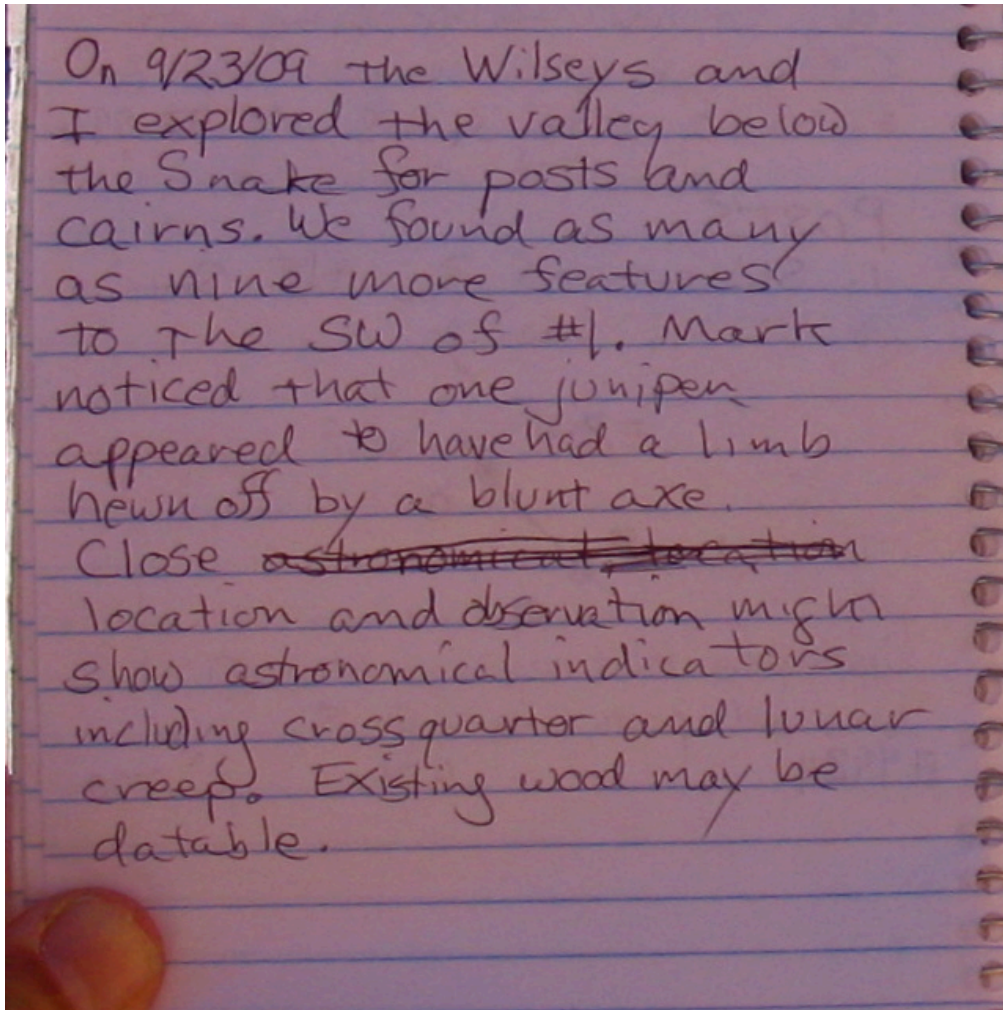 On 9/23/09 the Wilseys and
I explored the valley below
the Snake for posts and
cairns. We found as many
as nine more features
to the SW of #1. Mark
noticed that one juniper
appeared to have had a limb
hewn off by a blunt axe.
Close astronomical location
location and observation might
show astronomical indicators
including cross quarter and lunar
creep. Existing wood may be
datable.